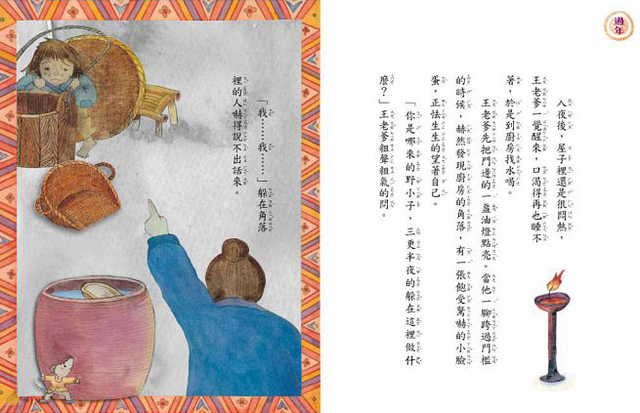 過年
入夜後，屋子裡還是很悶熱，
王老爹一覺醒來，口渴得再也睡不
著，於是到廚房找水喝。
王老爹先把門邊的一盞油燈點亮。當他一腳跨過門檻
的時候，赫然發現廚房的角落，有一張飽受驚嚇的小臉
蛋，正怯生生的望著自己。
「你是哪來的野小子，三更半夜的躲在這裡做什
麼？」王老爹粗聲粗氣的問。
「我……我……」躲在角落
裡的人嚇得說不出話來。